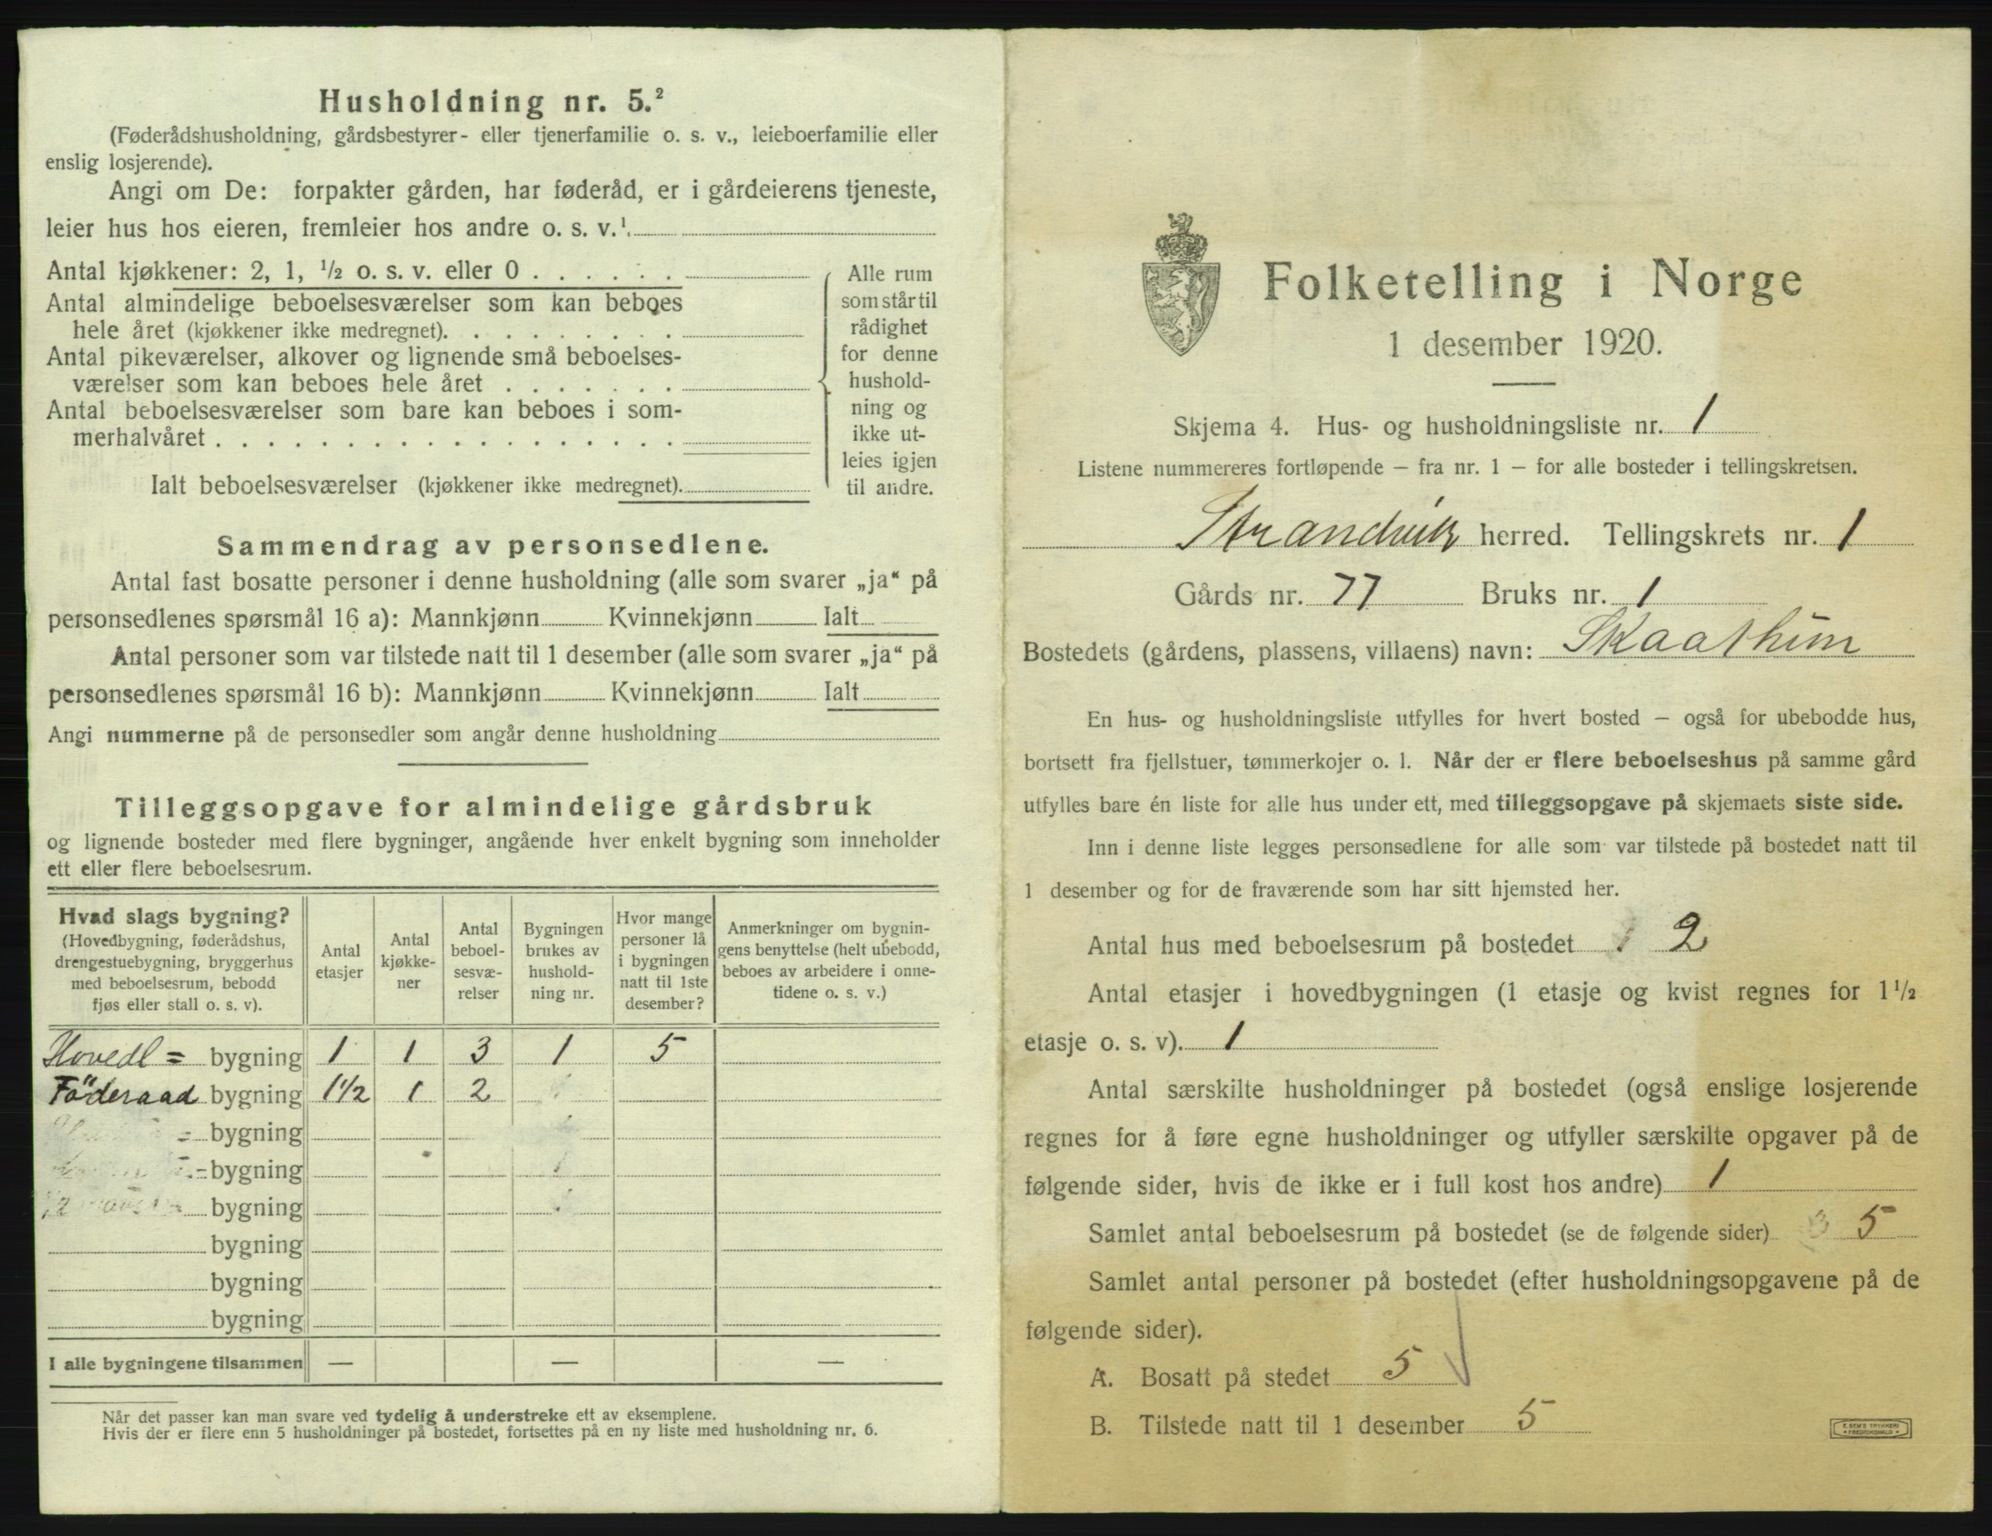 Husholdning nr. 5.²
(Føderådshusholdning, gårdsbestyrer- eller tjenerfamilie o. s. v., leieboerfamilie eller
enslig losjerende).
Angi om De: forpakter gården, har føderåd, er i gårdeierens tjeneste,
leier hus hos eieren, fremleier hos andre o. s. v.¹
Antal kjøkkener: 2, 1, ½ o. s. v. eller 0 . . . . . .
Antal almindelige beboelsesværelser som kan beboes
hele året (kjøkkener ikke medregnet). . . . . . . . .
Antal pikeværelser, alkover og lignende små beboelses-
værelser som kan beboes hele året . . . . . . .
Antal beboelsesværelser som bare kan beboes i som-
merhalvåret . . . . . . . . . . . . . . . . . .
Ialt beboelsesværelser (kjøkkener ikke medregnet).
Alle rum
som står til
rådighet
for denne
hushold-
ning og
ikke ut-
leies igjen
til andre.
Sammendrag av personsedlene.
Antal fast bosatte personer i denne husholdning (alle som svarer „ja“ på
personsedlenes spørsmål 16 a): Mannkjønn Kvinnekjønn Ialt
Antal personer som var tilstede natt til 1 desember (alle som svarer „ja“ på
personsedlenes spørsmål 16 b): Mannkjønn Kvinnekjønn Ialt
Angi nummerne på de personsedler som angår denne husholdning
Tilleggsopgave for almindelige gårdsbruk
og lignende bosteder med flere bygninger, angående hver enkelt bygning som inneholder
ett eller flere beboelsesrum.
Hvad slags bygning?
(Hovedbygning, føderådshus,
drengestuebygning, bryggerhus
med beboelsesrum, bebodd
fjøs eller stall o. s. v).
Antal
etasjer
Antal
kjøkke-
ner
Antal
beboel-
sesvæ-
relser
Bygningen
brukes av
hushold-
ning nr.
Hvor mange
personer lå
i bygningen
natt til 1ste
desember?
Anmerkninger om bygnin-
gens benyttelse (helt ubebodd,
beboes av arbeidere i onne-
tidene o. s. v.)
Hovedl = bygning 1 1 3 1 5
Föderaad bygning 1½ 1 2
= bygning
= bygning
bygning
bygning
bygning
bygning
I alle bygningene tilsammen — — —
Når det passer kan man svare ved tydelig å understreke ett av eksemplene.
Hvis der er flere enn 5 husholdninger på bostedet, fortsettes på en ny liste med husholdning nr. 6.
Folketelling i Norge
1 desember 1920.
Skjema 4. Hus- og husholdningsliste nr. 1
Listene nummereres fortløpende – fra nr. 1 – for alle bosteder i tellingskretsen.
Strandvik herred. Tellingskrets nr. 1
Gårds nr. 77 Bruks nr. 1
Bostedets (gårdens, plassens, villaens) navn: Skaathun
En hus- og husholdningsliste utfylles for hvert bosted – også for ubebodde hus,
bortsett fra fjellstuer, tømmerkojer o. l. Når der er flere beboelseshus på samme gård
utfylles bare én liste for alle hus under ett, med tilleggsopgave på skjemaets siste side.
Inn i denne liste legges personsedlene for alle som var tilstede på bostedet natt til
1 desember og for de fraværende som har sitt hjemsted her.
Antal hus med beboelsesrum på bostedet 1 2
Antal etasjer i hovedbygningen (1 etasje og kvist regnes for 1½
etasje o. s. v). 1
Antal særskilte husholdninger på bostedet (også enslige losjerende
regnes for å føre egne husholdninger og utfyller særskilte opgaver på de
følgende sider, hvis de ikke er i full kost hos andre) 1
Samlet antal beboelsesrum på bostedet (se de følgende sider) 3 5
Samlet antal personer på bostedet (efter husholdningsopgavene på de
følgende sider).
A. Bosatt på stedet 5
B. Tilstede natt til 1 desember 5
E. SEM'S TRYKKERI
FREDRIKSHALD